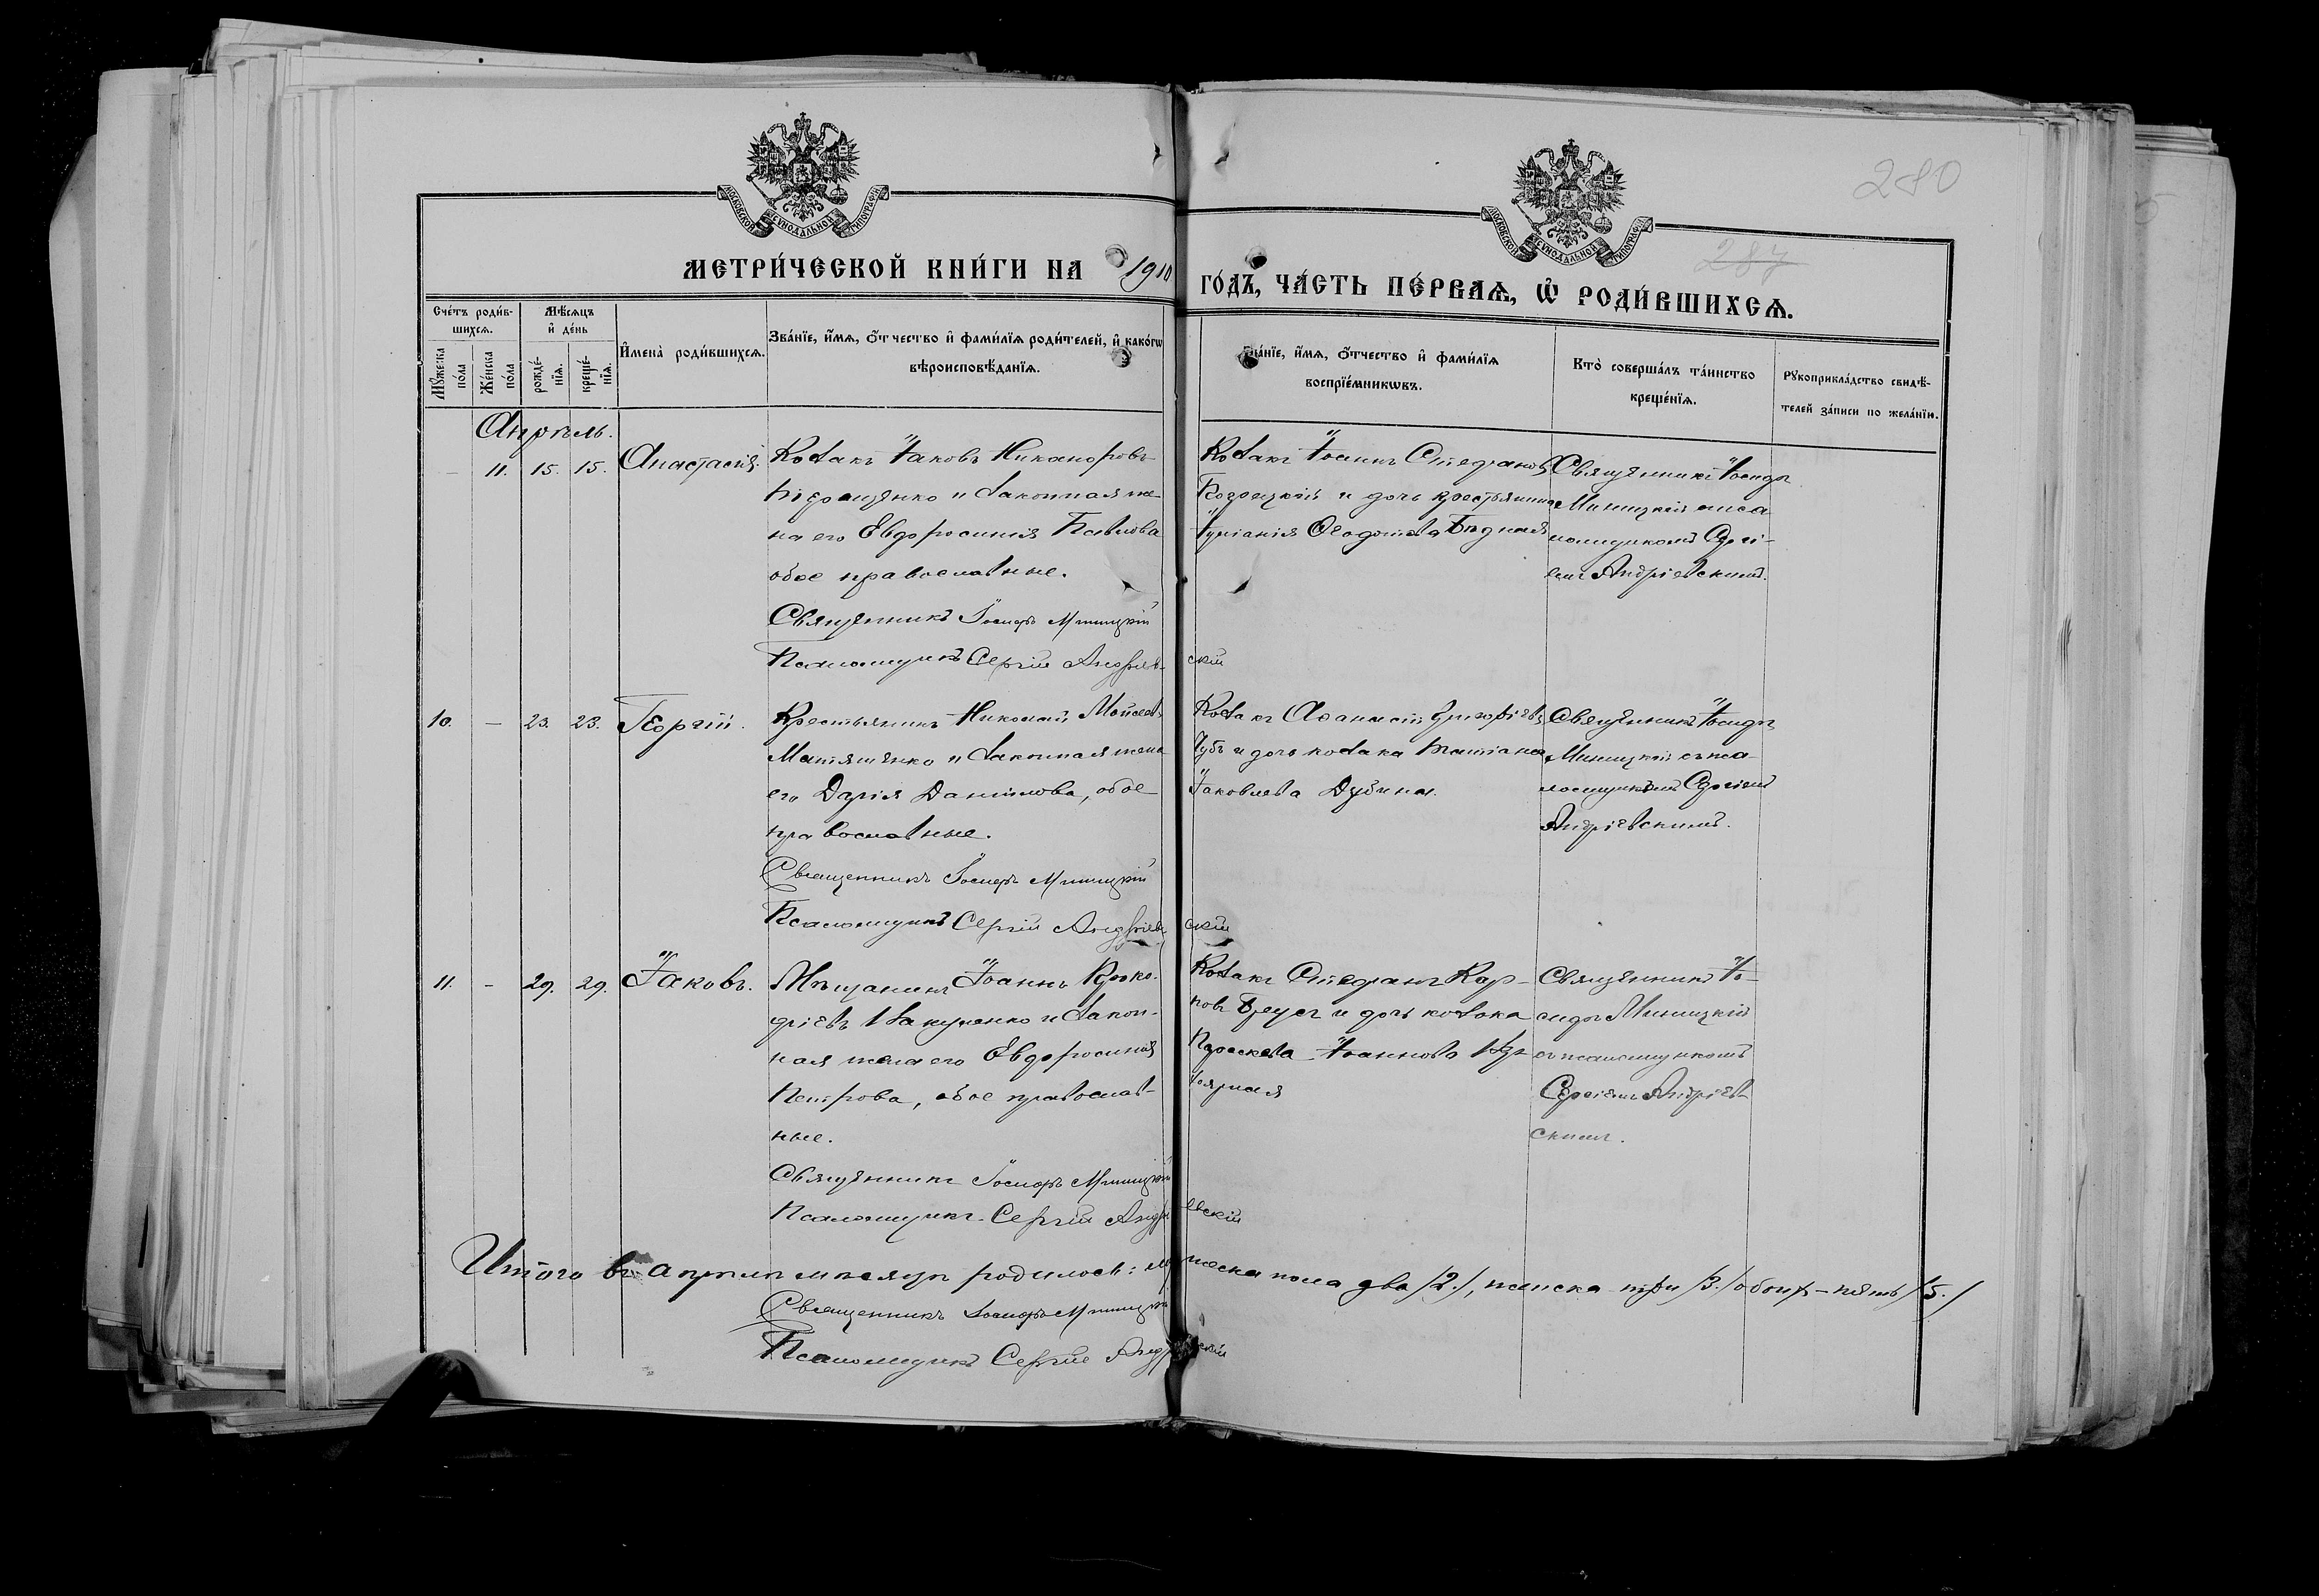 280
287
МОСКОВСКОЙ СѴНОДАЛЬНОЙ ТИПОГРАФІИ
МОСКОВСКОЙ СѴНОДАЛЬНОЙ ТИПОГРАФІИ
МЕТРИ́ЧЕСКОЙ КНИ́ГИ НА 1910 ГО́ДЪ, ЧА́СТЬ ПЕ́РВАѦ, Ѡ РОДИ́ВШИХСѦ.
Сче́тъ роди́в-
шихсѧ.
Мꙋ́жеска по́ла
Же́нска по́ла
Мѣ́сѧцъ и де́нь
рожде́-
нїѧ.
креще́-
нїѧ.
Имена̀ роди́вшихсѧ.
Зва́нїе, и́мѧ, о́тчество и фами́лїѧ роди́телей, и како́гѡ
вѣроисповѣ́данїѧ.
Зва́нїе, и́мѧ, о́тчество и фами́лїѧ
воспрїе́мникѡвъ.
Кто̀ соверша́лъ та́инство
креще́нїѧ.
Рꙋкоприкла́дство свидѣ́-
телей за́писи по жела́нїю.
Апрѣль.
– 11. 15. 15. Анастасія.
Козакъ Іаковъ Никаноровъ
и законная же-
на его Евфросинія Павлова
обое православные.
Священникъ Іосифъ Миницкій
Псаломщикъ Сергій Андріев-
скій
Козакъ Іоаннъ Стефановъ
и дочь крестьянина
Іуліанія Ѳеодотова Бѣдная
Священникъ Іосифъ
Миницкій с пса-
ломщикомъ Сергі-
емъ Андріевскимъ.
10. – 23. 23. Георгій.
Крестьянинъ Николай Мойсеевъ
Матяшенко и законная жена
его Дарія Даниилова, обое
православные.
Священникъ Іосифъ Миницкій
Псаломщикъ Сергій Андріев-
скій
Козакъ Аѳанасій Григоріевъ
Чубъ и дочь козака Татіана
Іаковлева Дубина.
Священникъ Іосифъ
Миницкій съ пса-
ломщикомъ Сергіемъ
Андріевскимъ.
11. – 29. 29. Іаковъ.
Мѣщанинъ Іоаннъ
и закон-
ная жена его Евфросинія
Петрова, обое православ-
ные.
Священникъ Іосифъ Миницкій
Псаломщикъ Сергій Андрі
евскій
Козакъ Стефанъ Кар-
повъ и дочь козака
Параскева Іоаннова
Священникъ Іо-
сифъ Миницкій
съ псаломщикомъ
Сергіемъ Андріев-
скимъ.
Итого въ апрѣлѣ мѣсяцѣ родилось: мужеска пола два /2./, женска три /3./ обоихъ – пять /5./
Священникъ Іосифъ Миницкій
Псаломщикъ Сергій Андріевскій